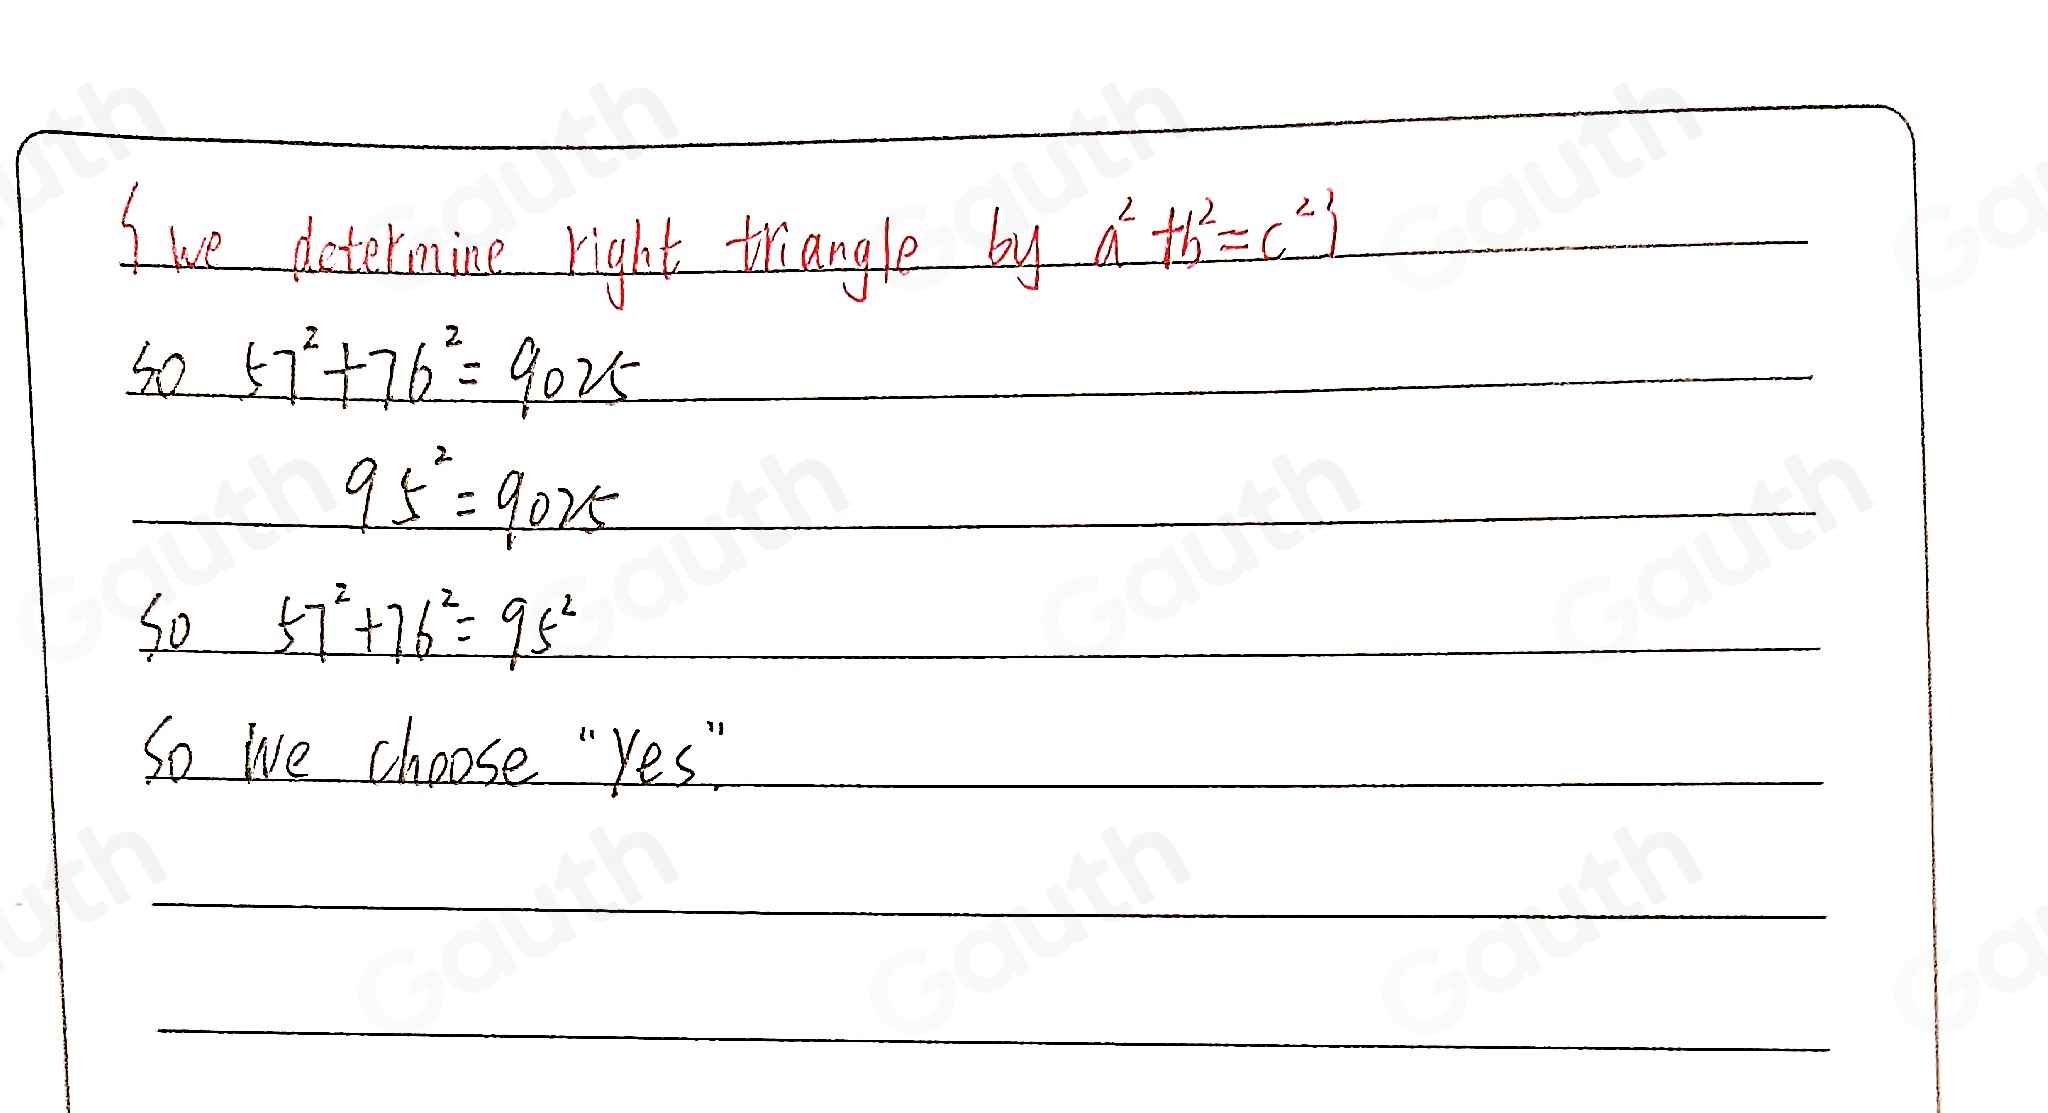 {we determine right triangle by a²+b²=c²}
so 57²+76²=9025
95²=9025
so 57²+76²=95²
so we choose "Yes".